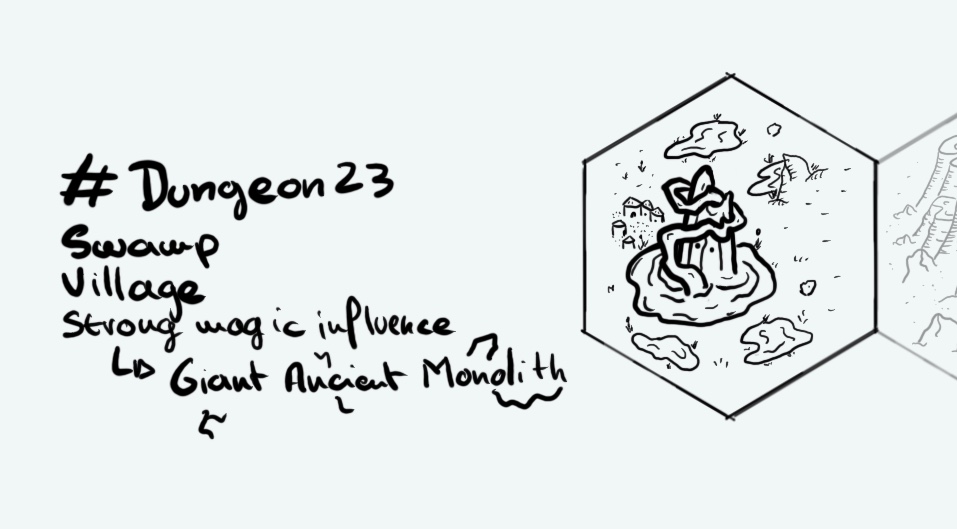 # Dungeon23
Swamp
Village
Strong magic influence
Giant Ancient Monolith